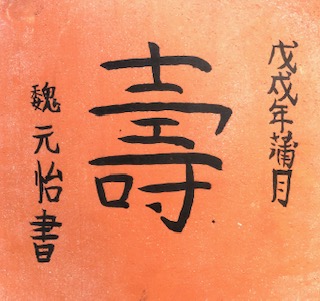 戊戌年蒲月
壽
魏元怡書